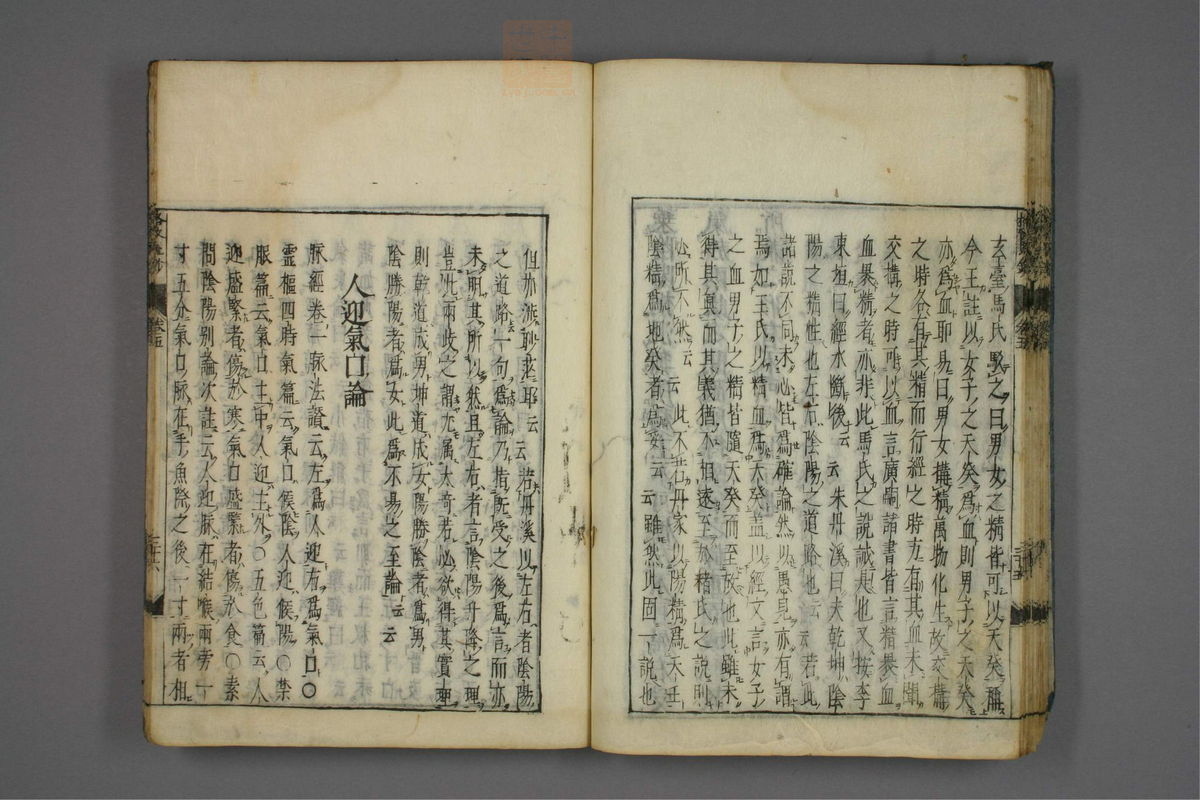 玄臺馬氏駁之曰男女之精皆可以天癸稱
今王註以女子之天癸爲血則男子之天癸
亦爲血耶易曰男女搆精萬物化生故交搆
之時各有其精而行經之時方有其血未聞
交搆之時可以血言廣嗣諸書皆言精裹血
血裹精者亦非此馬氏之說誠是也又按李
東垣曰經水斷後云云朱丹溪曰夫乾坤陰
陽之情性也左右陰陽之道路也云云若此
諸說不同未必皆爲確論然以愚見亦有謂
焉如王氏以精血爲天癸盖以經文言女子
之血男子之精皆隨天癸而至故也此雖未
得其眞而其義猶不相遠至於褚氏之說則
必所不然云云此不若丹家以陽精爲天壬
陰精爲地癸者爲妥云云雖然此固一說也
但亦渺茫耶云云若丹溪以左右者陰陽
之道路一句爲論乃指旣受之後爲言而亦
未明其所以然且左右者言陰陽升降之理
豈此兩歧之謂尤属太奇若必欲得其實理
則乾道成男坤道成女陽勝陰者爲男
陰勝陽者爲女此爲不易之至論云云
人迎氣口論
脉經卷一脉法讃云左爲人迎右爲氣口○
靈樞四時氣篇云氣口候陰人迎候陽○禁
服篇云氣口主中人迎主外○五色篇云人
迎盛緊者傷於寒氣口盛緊者傷於食○素
問陰陽別論次註云人迎脉在結喉兩旁一
寸五分氣口脉在手魚際之後一寸兩者相